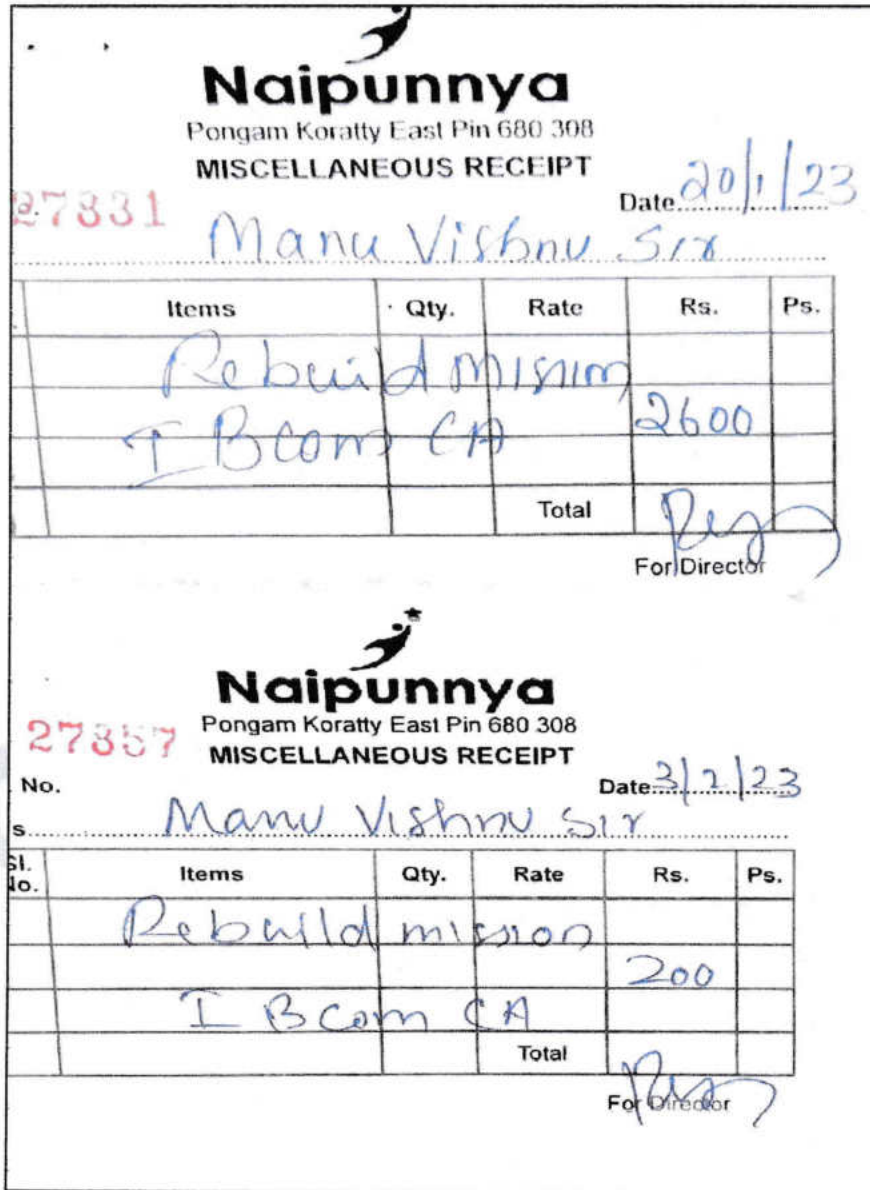 Naipunnya
Pongam Koratty East Pin 680 308
MISCELLANEOUS RECEIPT
27831
Date 20/1/23
Manu Vishnu Sir
Items Qty. Rate Rs. Ps.
Rebuild mission
I Bcom CA 2600
Total
For Director
Naipunnya
Pongam Koratty East Pin 680 308
27857 MISCELLANEOUS RECEIPT
No. Date 3/2/23
s Manu Vishnu Sir
Sl. No. Items Qty. Rate Rs. Ps.
Rebuild mission
200
I Bcom CA
Total
For Director